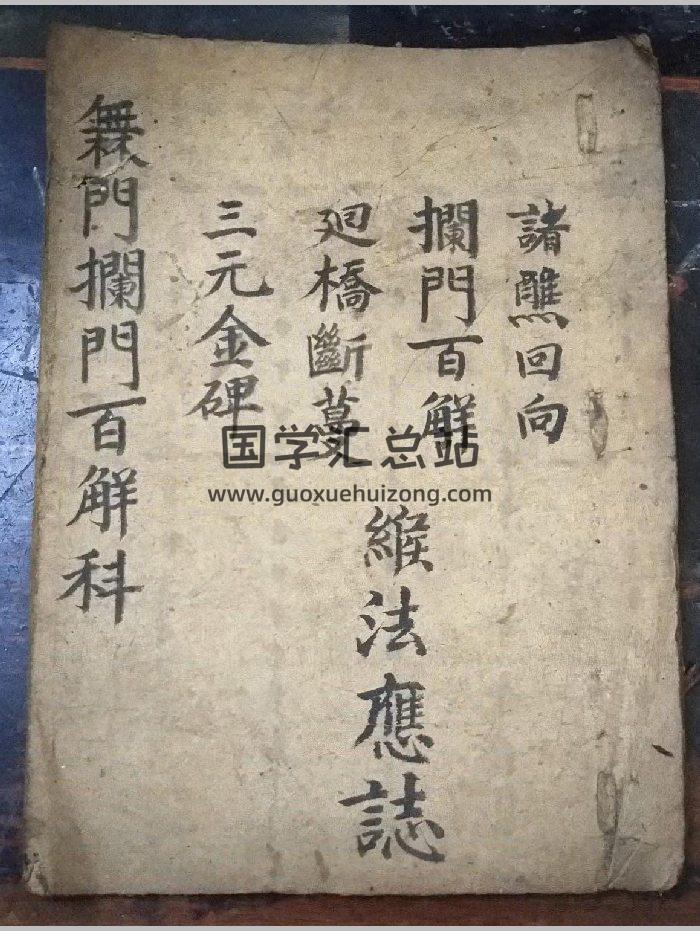 諸醮回向
攔門百觧
廻橋斷
緱法應誌
三元金碑
橆門攔門百觧科
国学汇总站
www.guoxuehuizong.com